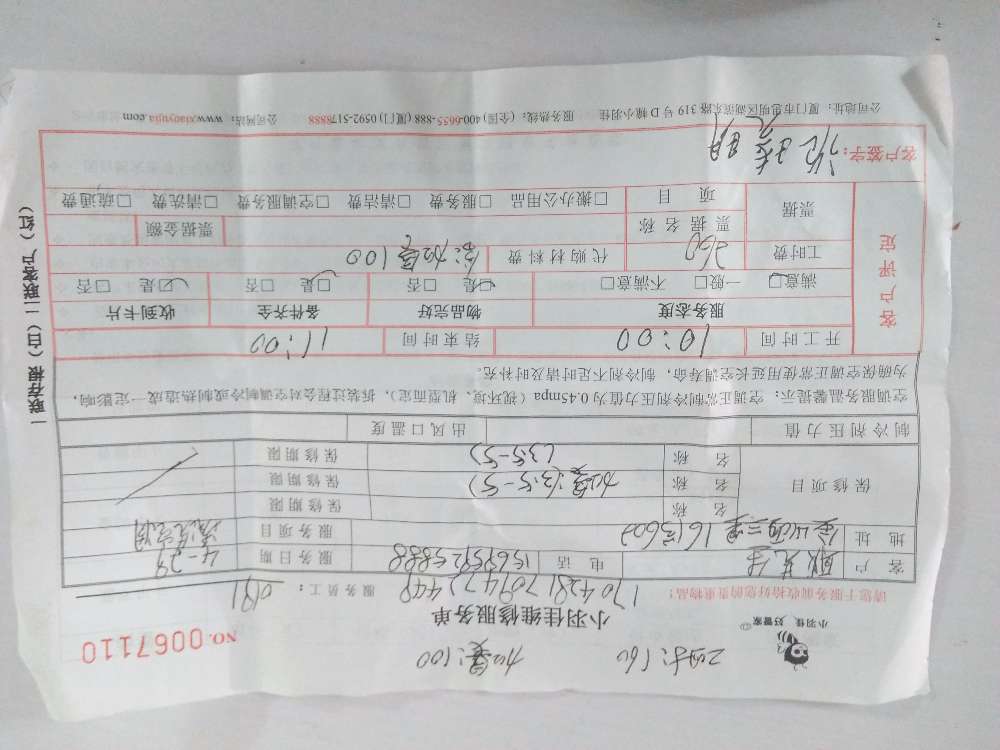 工时:160 加氟:100
小羽佳 好管家
小羽佳维修服务单
NO. 0067110
请您于服务前收拾好您的贵重物品!
17042817094724 服务员工:
客户 先生 电话 15659255888 服务日期 4-29
地址 服务项目
保修项目
名称 保修期限
名称 加氟(3.5-5) 保修期限
名称 (3.5-5) 保修期限
制冷剂压力值 出风口温度
空调服务温馨提示:空调正常制冷剂压力值为0.45mpa(视环境、机型而定),拆装过程会对空调制冷或制热造成一定影响,
为确保空调正常使用延长空调寿命,制冷剂不足时请及时补充。
客户评定
开工时间 10:00 结束时间 11:00
服务态度 物品完好 备件齐全 收到卡片
满意□ 一般□ 不满意□ □是 □否 □是 □否 □是 □否
工时费 260 代购材料费 含:加氟100
票据 票据名称 票据金额
项目 □搬办公用品 □服务费 □清洁费 □空调服务费 □清洗费 □疏通费
客户签字:
公司地址:厦门市思明区湖滨东路319号D幢小羽佳 服务热线:(全国)400-6655-888 (厦门)0592-5178888 公司网站:www.xiaoyujia.com
一联存根(白)二联客户(红)